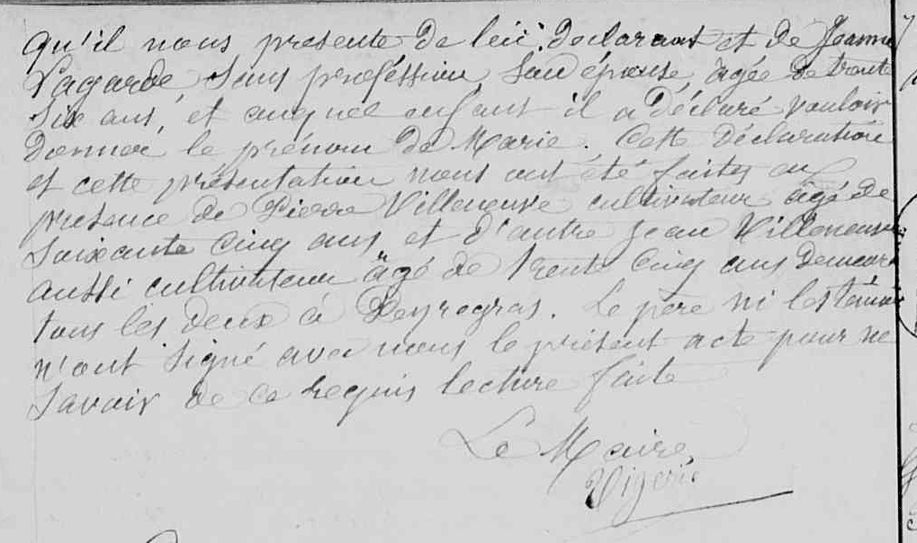 qu'il nous presente de lui déclarant et de Jeanne
Lagarde sans proféssion son épouse âgée de trente
Six ans, et auquel enfant il a déclaré vouloir
Donner le prénom de Marie. Cette Déclaration
et cette présentation nous ont été faites en
presence de Pierre Villeneuve cultivateur âgé de
Soixante Cinq ans et d'autre Jean Villeneuve
aussi cultivateur âgé de trente Cinq ans Demeurt
tous les deux à Peyrogras. Le père ni les témoins
n'ont Signé avec nous le présent acte pour ne
Savoir de ce requis lecture faite
Le Maire
Vigerie